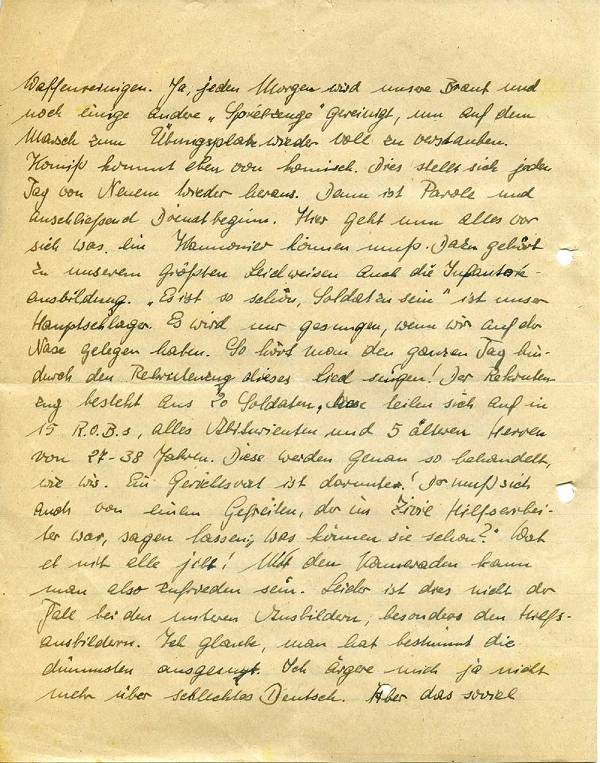 Waffenreinigen. Ja, jeden Morgen wird unsere Braut und
noch einige andere „Spielzeuge" gereinigt, um auf dem
Marsch zum Übungsplatz wieder voll zu verstauben.
Komiß kommt eben von komisch. Dies stellt sich jeden
Tag von Neuem wieder heraus. Dann ist Parole und
anschließend Dienstbeginn. Hier geht nun alles vor
sich was ein Kannonier können muß. Dazu gehört
zu unserem größten Leidweisen auch die Infanterie-
ausbildung. „Es ist so schön, Soldat zu sein" ist unser
Hauptschlager. Es wird nur gesungen, wenn wir auf der
Nase gelegen haben. So hört man den ganzen Tag hin-
durch den Rekrutenzug dieses Lied singen! Der Rekruten-
zug besteht aus 20 Soldaten, diese teilen sich auf in
15 R.O.B.s, alles Abiturienten und 5 ältere Herren
von 27-38 Jahren. Diese werden genau so behandelt,
wie wir. Ein Gerichtsrat ist darunter! Der muß sich
auch von einem Gefreiten, der im Zivil Hilfsarbei-
ter war, sagen lassen: „was können sie schon?" Wat
et nit alle jibt! Mit den Kameraden kann
man also zufrieden sein. Leider ist dies nicht der
Fall bei den unteren Ausbildern, besonders den Hilfs-
ausbildern. Ich glaube, man hat bestimmt die
dümmsten ausgesucht. Ich ärgere mich ja nicht
mehr über schlechtes Deutsch. Aber das soviel